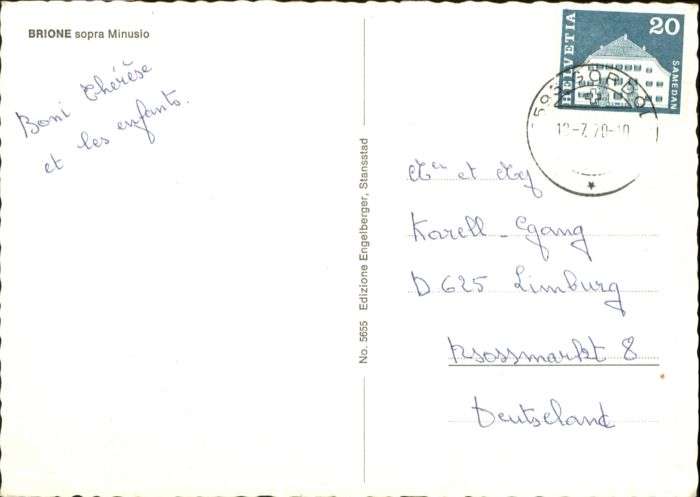 BRIONE sopra Minusio
Boni Thérèse
et les enfants.
No. 5655 Edizione Engelberger, Stansstad
HELVETIA
20
SAMEDAN
GORDOLA
et
Karell - Egang
D 625 Limburg
Rossmarkt 8
Deutscland